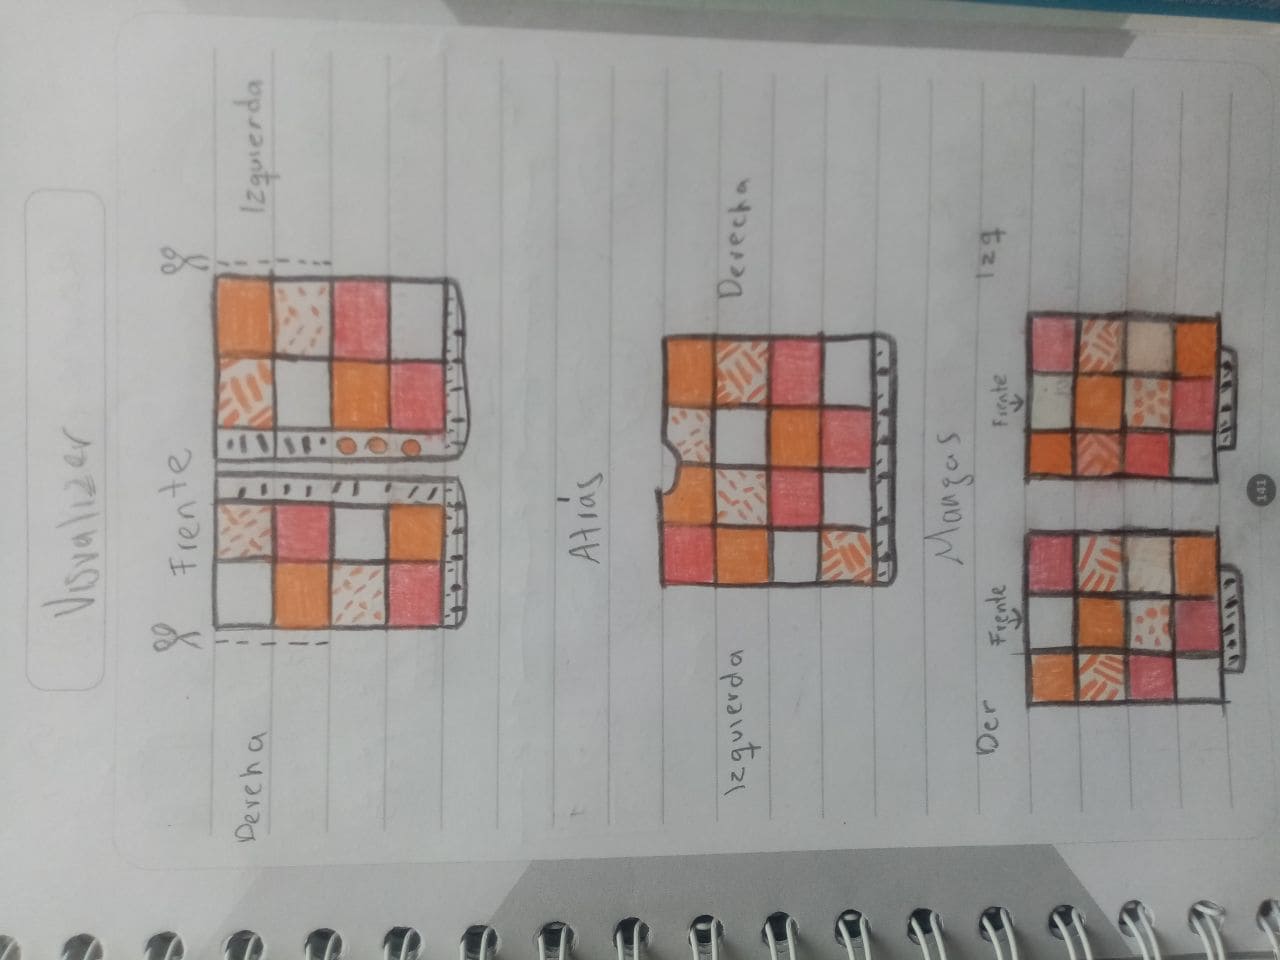 Visualizer
Frente
Derecha Izquierda
Atrás
Izquierda Derecha
Mangas
Der Frente Frente Izq
141